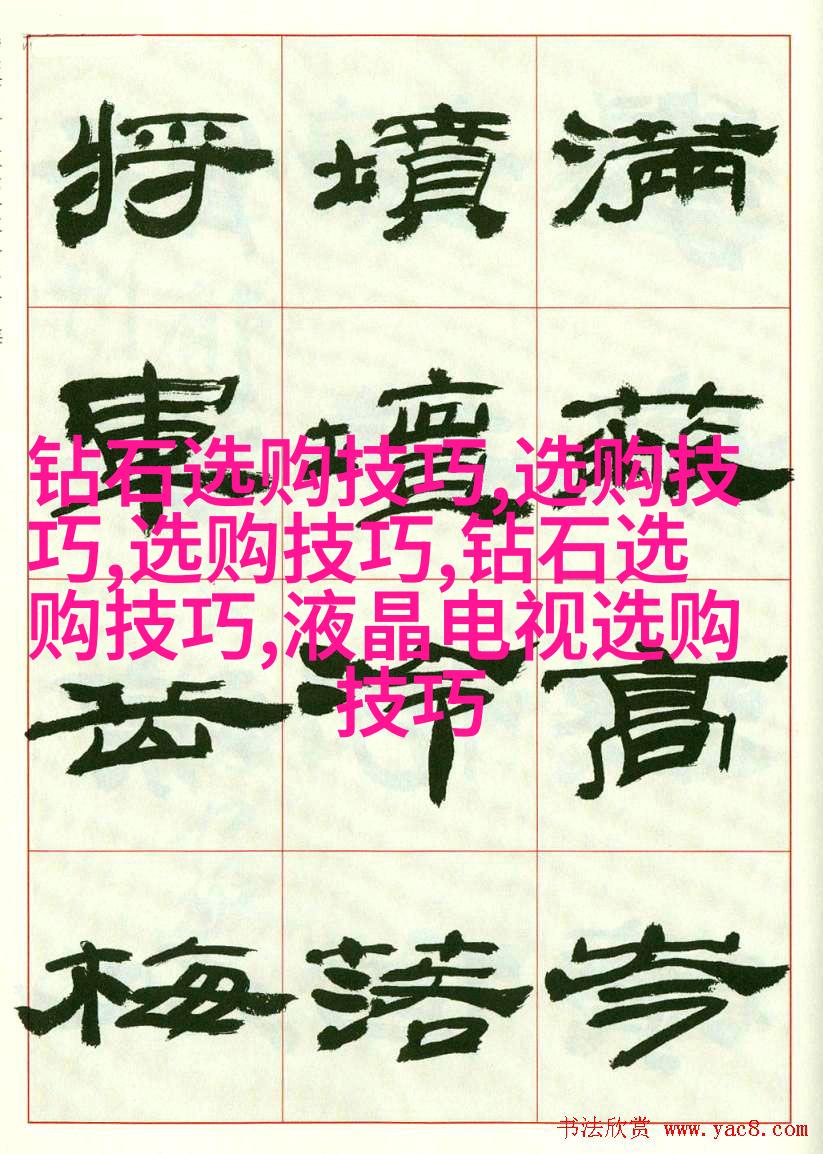 满高岑
墳壇冷落
将軍岳梅
钻石选购技巧,选购技
巧,选购技巧,钻石选
购技巧,液晶电视选购
技巧
书法欣赏 www.yac8.com